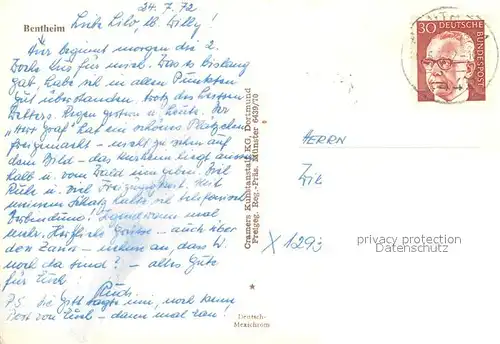 24.7.72
Liebe Lilo, lb. Willy!
Bentheim
Hier beginnt morgen die 2.
Woche Kur für mich. Das es bislang
gab, habe ich in allen Punkten
gut überstanden, trotz des heissen
Wetters. Regen gestern u. heute. Der
"Herr Graf" hat ein schönes Plätzchen
freigemacht - nicht zu sehn auf
dem Bild - das Kurheim liegt ausser-
halb u. vom Wald umgeben. Viel
Ruhe u. viel Freizügigkeit. Mit
meinem halte ich telefonisch
Verbindung! Irgendwann mal
mehr. Herzliche Grüsse - auch über
den Zaun - nehme an, dass Ihr
noch da seid? - alles Gute
für Euch!
Rudi.
P.S. die sagte mir, noch keine
Post von Euch - dann mal ran!
Cramers Kunstanstalt KG, Dortmund
Freigeg. Reg.-Präs. Münster 6439/70
Deutsch-
Mexichrom
30
DEUTSCHE
BUNDESPOST
HERRN
X 1293
protected by copyright
Datenschutz